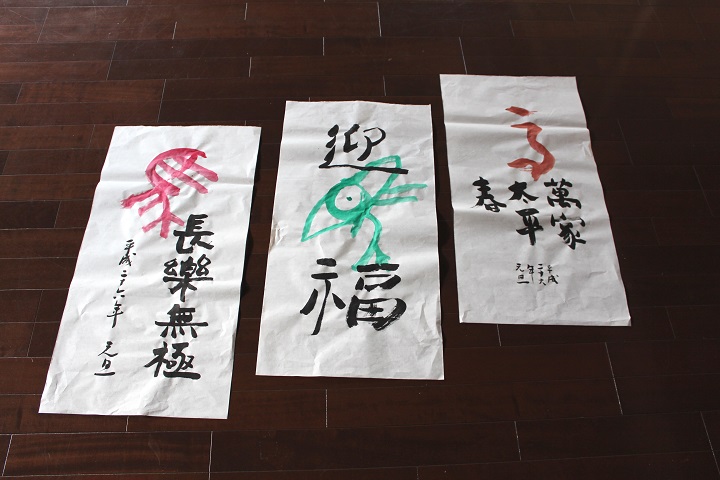 長樂無極
平成二十六年 元旦
迎
福
萬家
太平
春
平成
二十六
年
元旦